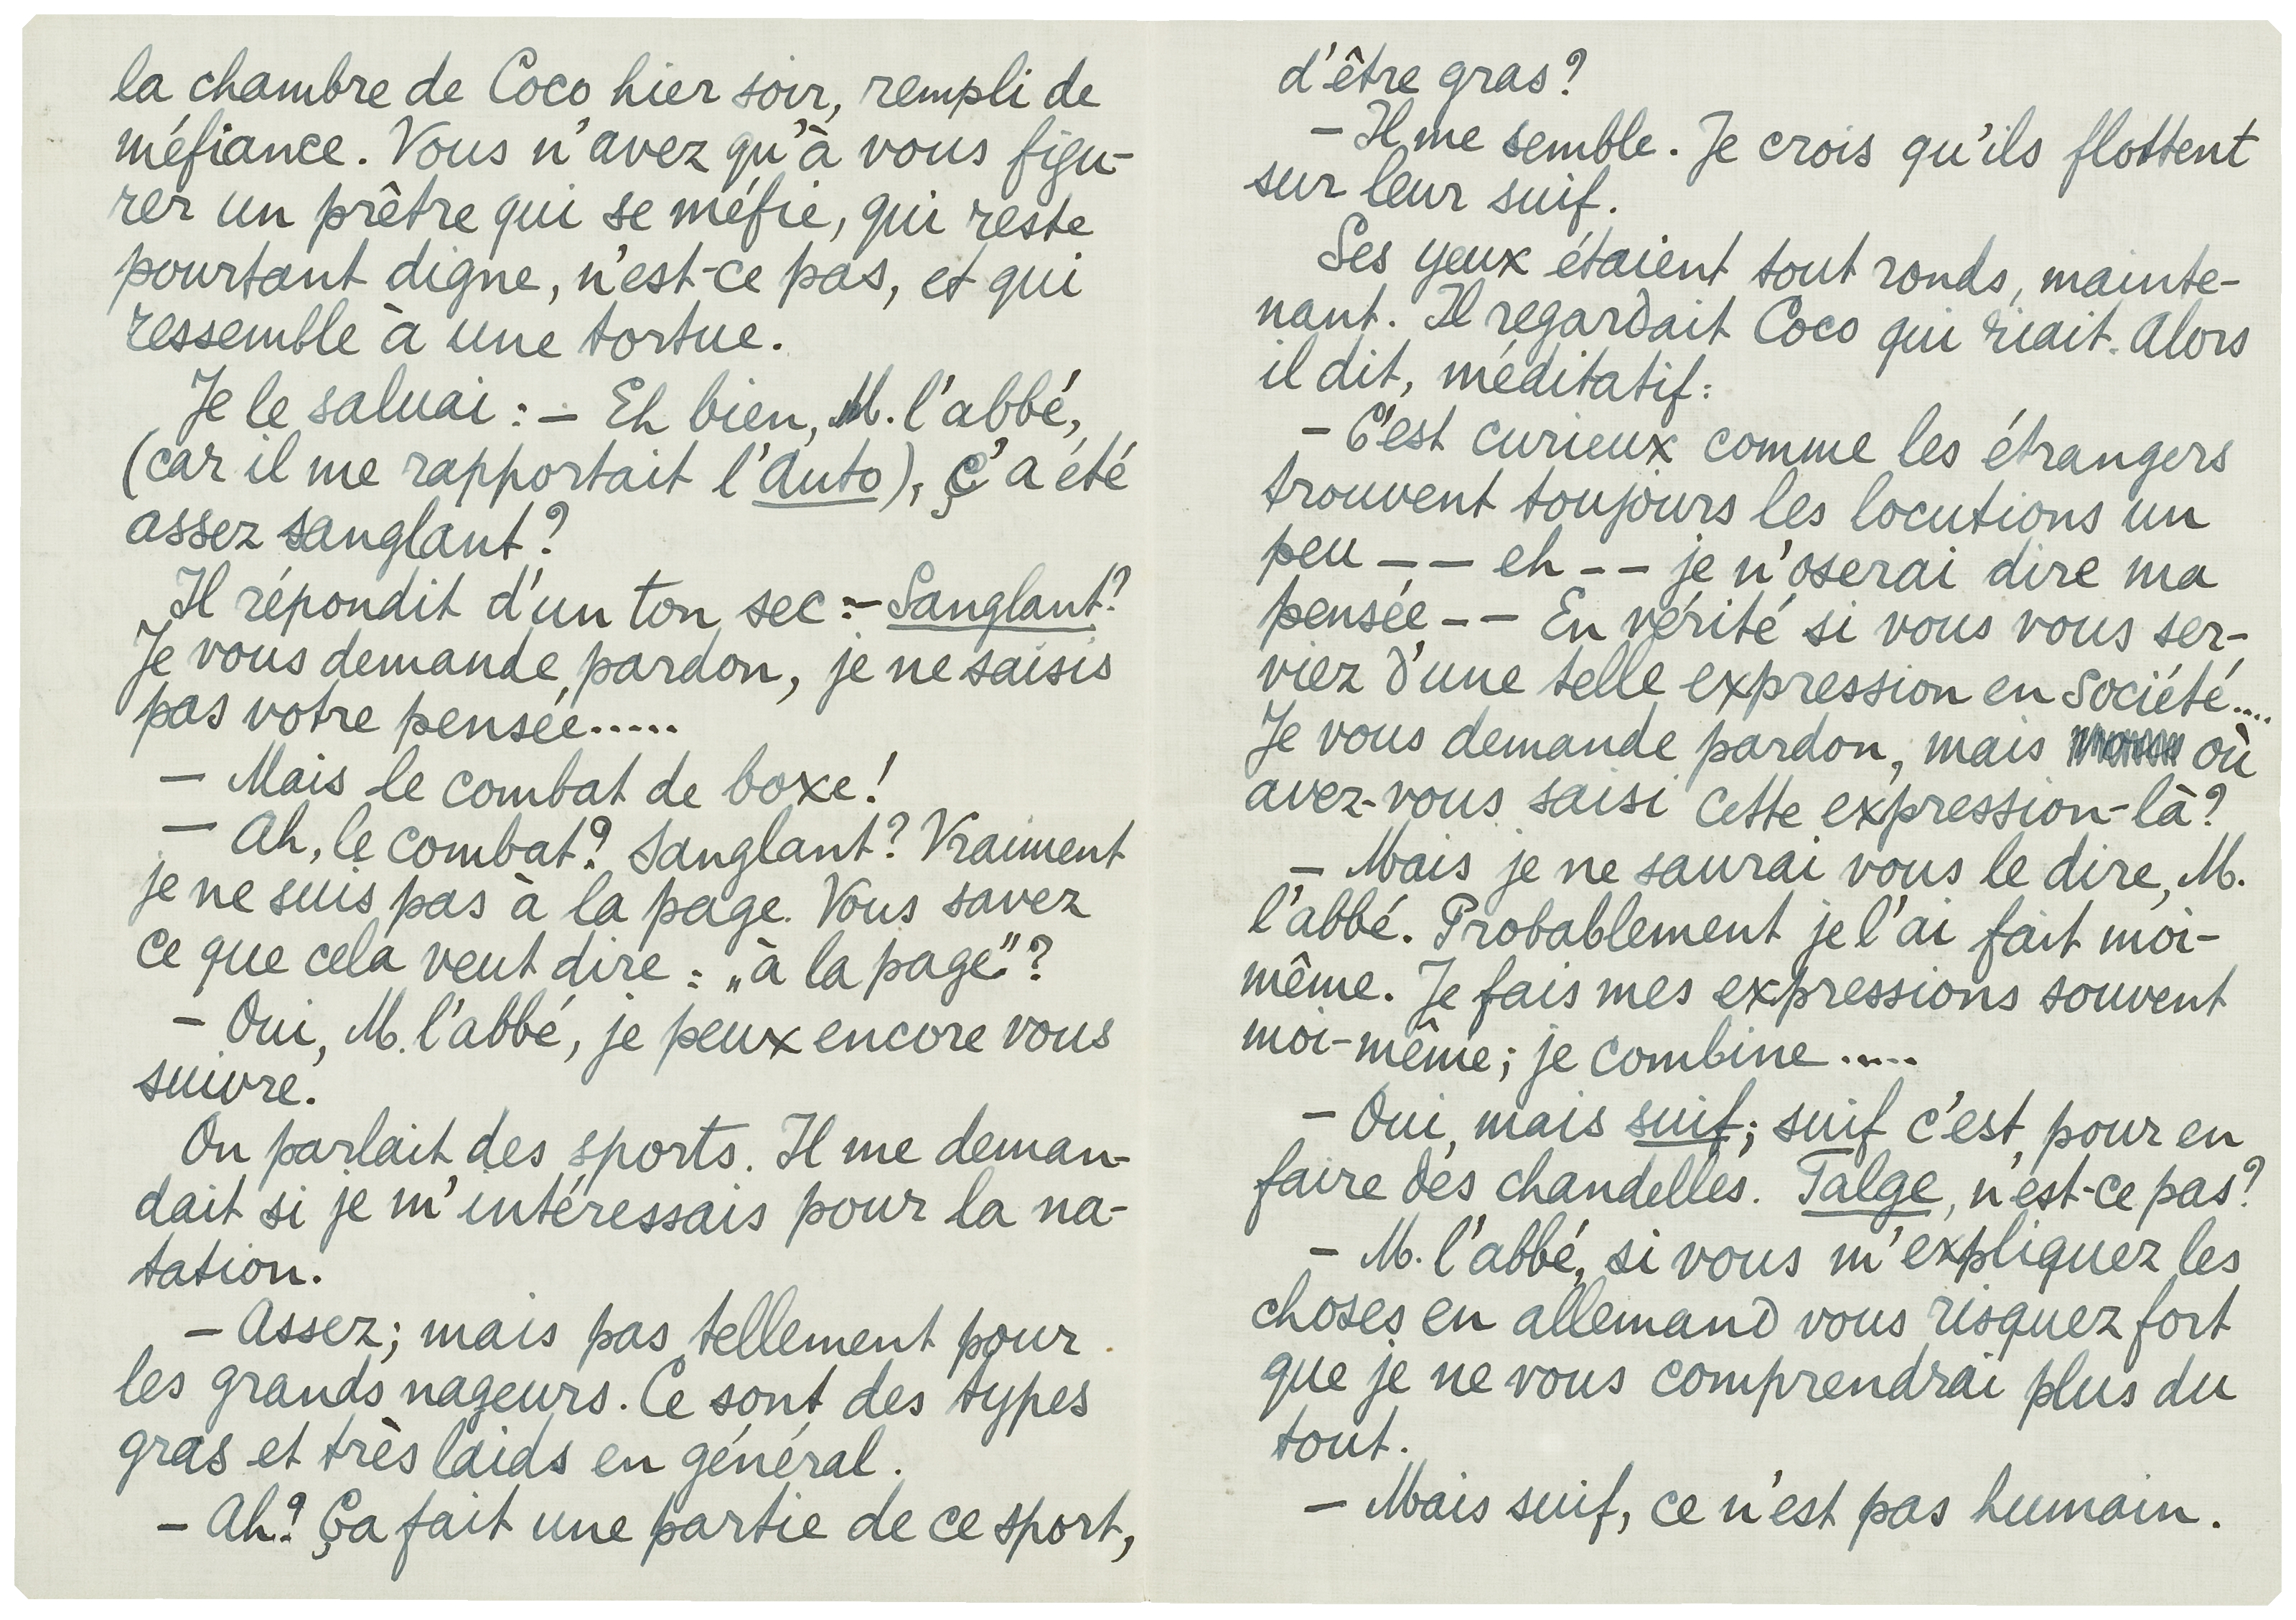 la chambre de Coco hier soir, rempli de
méfiance. Vous n'avez qu'à vous figu-
rer un prêtre qui se méfie, qui reste
pourtant digne, n'est-ce pas, et qui
ressemble à une tortue.
Je le saluai : – Eh bien, M. l'abbé,
(car il me rapportait l'Auto), Ç'a été
assez sanglant?
Il répondit d'un ton sec :– Sanglant?
Je vous demande pardon, je ne saisis
pas votre pensée.....
– Mais le combat de boxe!
– Ah, le combat? Sanglant? Vraiment
je ne suis pas à la page. Vous savez
ce que cela veut dire : „à la page"?
– Oui, M. l'abbé, je peux encore vous
suivre.
On parlait des sports. Il me deman-
dait si je m'intéressais pour la na-
tation.
– Assez; mais pas tellement pour
les grands nageurs. Ce sont des types
gras et très laids en général.
– Ah? Ça fait une partie de ce sport,
d'être gras?
– Il me semble. Je crois qu'ils flottent
sur leur suif.
Ses yeux étaient tout ronds, mainte-
nant. Il regardait Coco qui riait. Alors
il dit, méditatif:
– C'est curieux comme les étrangers
trouvent toujours les locutions un
peu – – eh – – je n'oserai dire ma
pensée – – En vérité si vous vous ser-
viez d'une telle expression en Société....
Je vous demande pardon, mais où
avez-vous saisi cette expression-là?
– Mais je ne saurai vous le dire, M.
l'abbé. Probablement je l'ai fait moi-
même. Je fais mes expressions souvent
moi-même; je combine.....
– Oui, mais suif; suif c'est pour en
faire des chandelles. Talge, n'est-ce pas?
– M. l'abbé, si vous m'expliquez les
choses en allemand vous risquez fort
que je ne vous comprendrai plus du
tout.
– Mais suif, ce n'est pas humain.